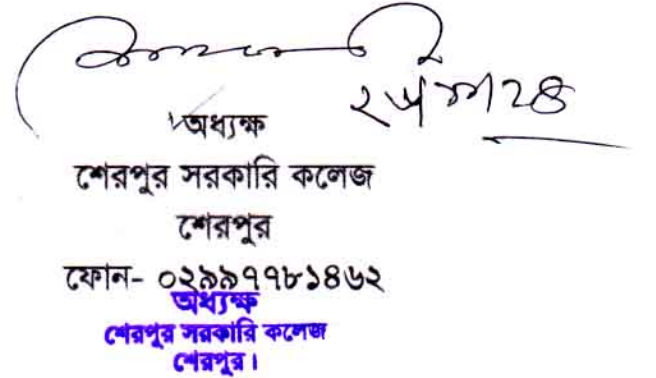 অধ্যক্ষ
শেরপুর সরকারি কলেজ
শেরপুর
ফোন- ০২৯৯৭৭৮১৪৬২
অধ্যক্ষ
শেরপুর সরকারি কলেজ
শেরপুর।